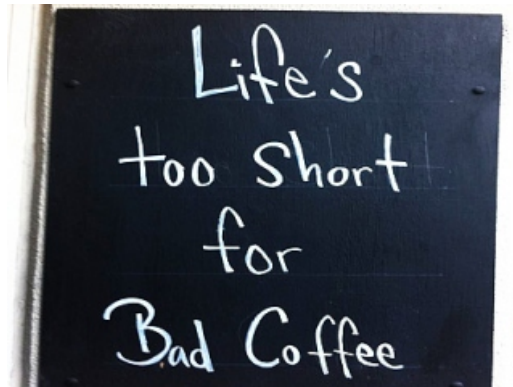 Life's
too short
for
Bad Coffee